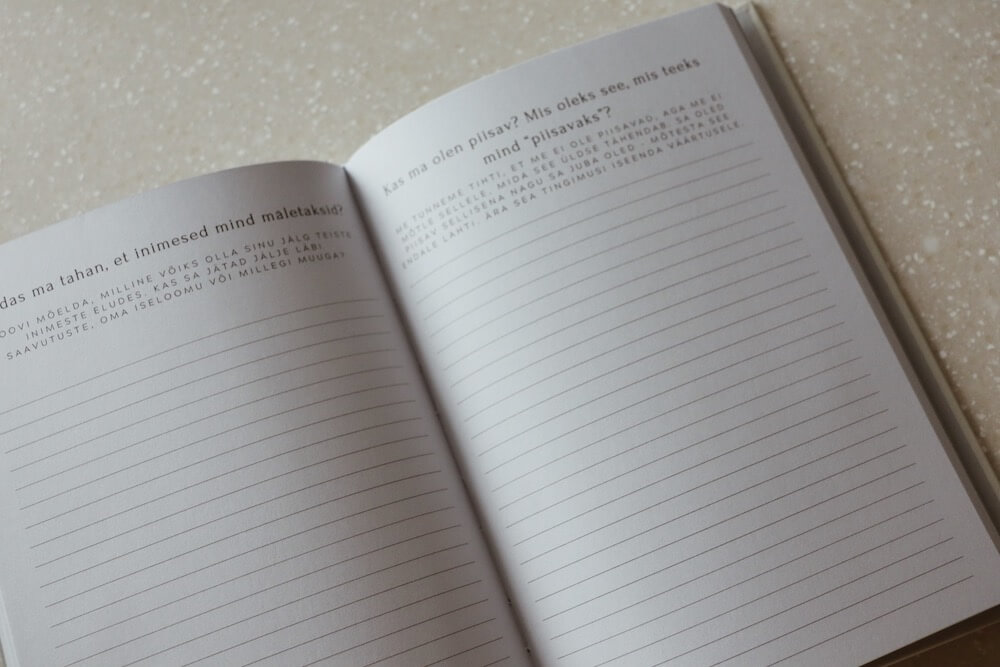 das ma tahan, et inimesed mind mäletaksid?
OOVI MÕELDA, MILLINE VÕIKS OLLA SINU JÄLG TEISTE
INIMESTE ELUDES, KAS SA JÄTAD JÄLJE LÄBI
SAAVUTUSTE, OMA ISELOOMU VÕI MILLEGI MUUGA?
Kas ma olen piisav? Mis oleks see, mis teeks
mind "piisavaks"?
ME TUNNEME TIHTI, ET ME EI OLE PIISAVAD, AGA ME EI
MÕTLE SELLELE, MIDA SEE ÜLDSE TÄHENDAB. SA OLED
PIISAV SELLISENA NAGU SA JUBA OLED - MÕTESTA SEE
ENDALE LAHTI. ÄRA SEA TINGIMUSI ISEENDA VÄÄRTUSELE